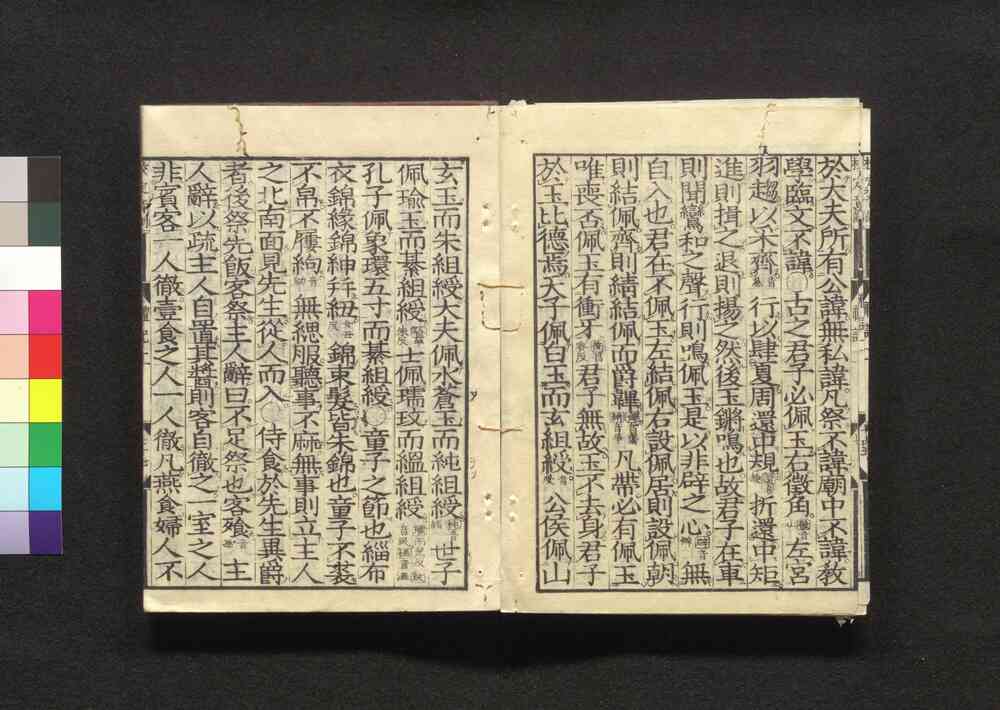 於大夫所有公諱無私諱凡祭不諱廟中不諱教
學臨文不諱古之君子必佩玉右徵角左宮
羽趨以采齊行以肆夏周還中規折還中矩
進則揖之退則揚之然後玉鏘鳴也故君子在車
則聞鸞和之聲行則鳴佩玉是以非辟之心無
自入也君在不佩玉左結佩右設佩居則設佩朝
則結佩齊則綪結佩而爵韠凡帶必有佩玉
唯喪否佩玉有衝牙君子無故玉不去身君子
於玉比德焉天子佩白玉而玄組綬公侯佩山
玄玉而朱組綬大夫佩水蒼玉而純組綬世子
佩瑜玉而綦組綬士佩瓀玟而縕組綬
孔子佩象環五寸而綦組綬童子之節也緇布
衣錦緣錦紳幷紐錦束髮皆朱錦也童子不裘
不帛不屨絇無緦服聽事不麻無事則立主人
之北南面見先生從人而入侍食於先生異爵
者後祭先飯客祭主人辭曰不足祭也客飧主
人辭以疏主人自置其醬則客自徹之一室之人
非賓客一人徹壹食之人一人徹凡燕食婦人不